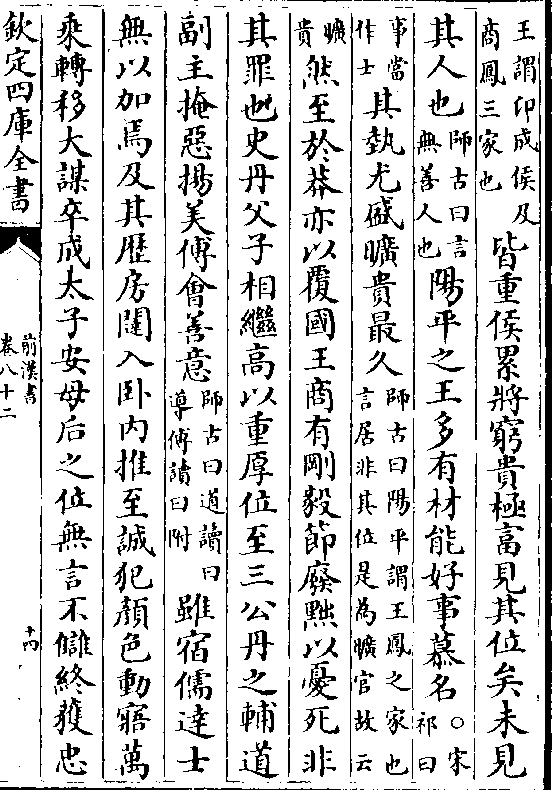 王謂印成侯及
商鳳三家也
皆重侯累將窮貴極富見其位矣未見
其人也
師古曰言
無善人也
陽平之王多有材能好事慕名
○宋
祁曰
事當
作士
其埶尤盛曠貴最久
師古曰陽平謂王鳳之家也
言居非其位是為曠官故云
曠
貴
然至於莽亦以覆國王商有剛毅節廢黜以憂死非
其罪也史丹父子相繼高以重厚位至三公丹之輔道
副主掩惡揚美傅會善意
師古曰道讀曰
導傅讀曰附
雖宿儒達士
無以加焉及其歷房闥入卧内推至誠犯顔色動寤萬
乘轉移大謀卒成太子安母后之位無言不讎終獲忠
欽定四庫全書
前漢書
卷八十二
十四